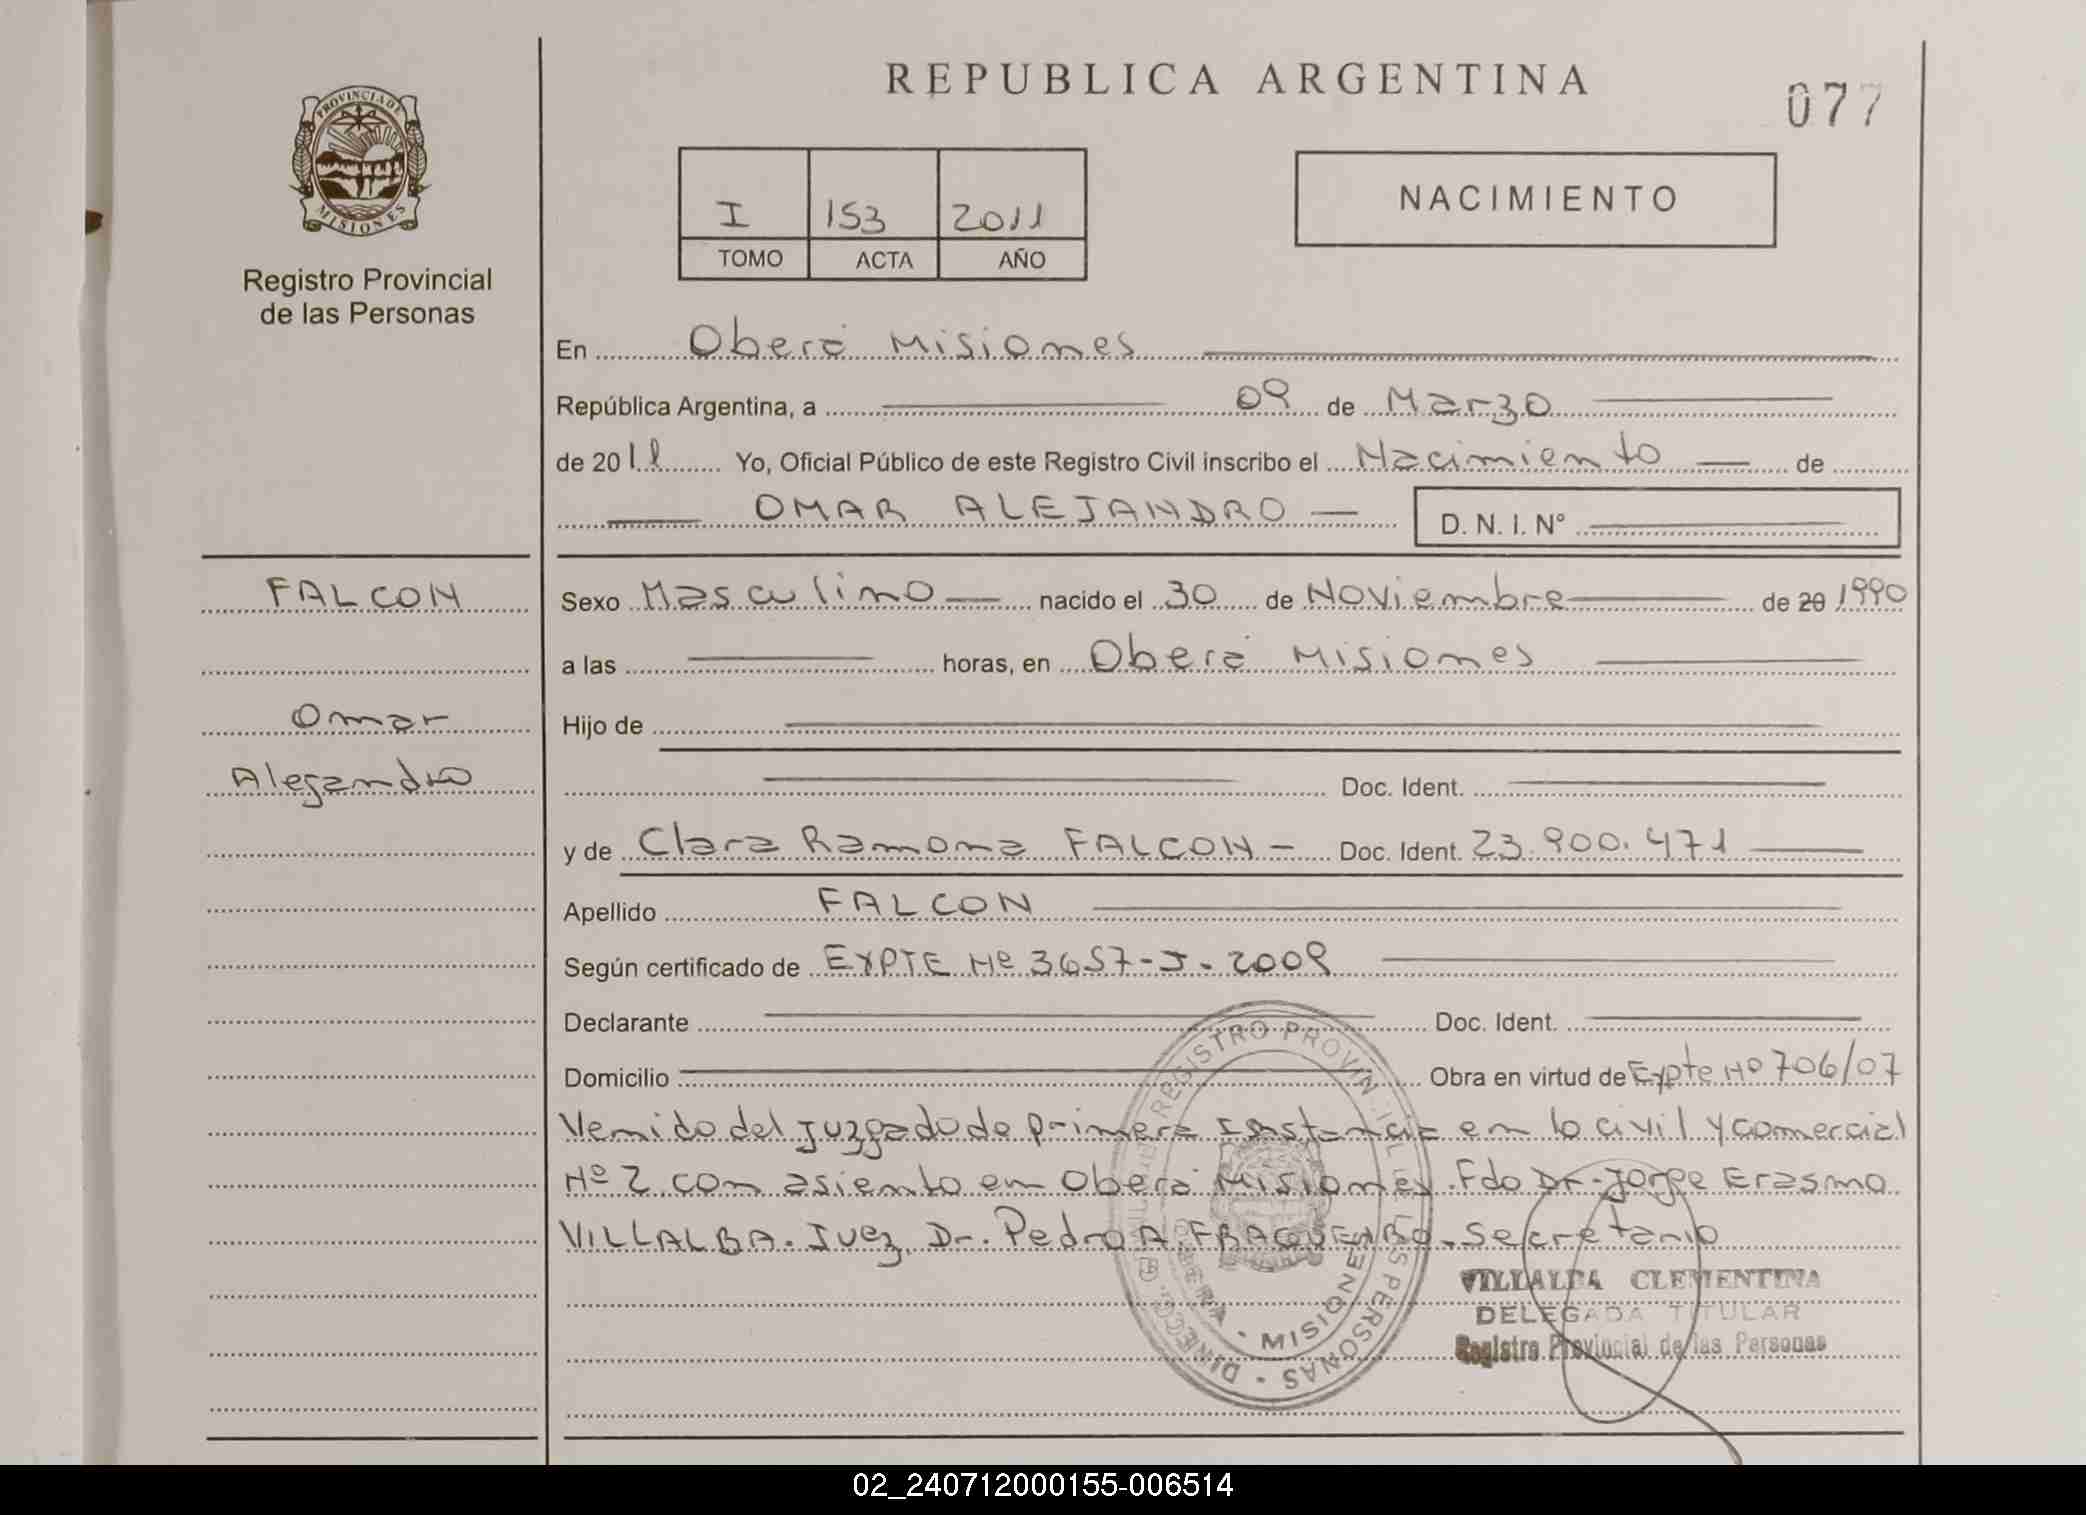 REPUBLICA ARGENTINA
077
PROVINCIA DE
MISIONES
Registro Provincial
de las Personas
I 153 2011
TOMO ACTA AÑO
NACIMIENTO
En Oberá Misiones
República Argentina, a 09 de Marzo
de 2011 Yo, Oficial Público de este Registro Civil inscribo el Nacimiento de
OMAR ALEJANDRO D. N. I. N°
FALCON
Omar
Alejandro
Sexo Masculino nacido el 30 de Noviembre de 20 1990
a las horas, en Oberá Misiones
Hijo de
Doc. Ident.
y de Clara Ramona FALCON - Doc. Ident. 23.900.471
Apellido FALCON
Según certificado de EXPTE Nº 3657-J-2009
Declarante Doc. Ident.
Domicilio Obra en virtud de Expte Nº 706/07
Venido del juzgado de primera Instancia en lo civil y comercial
Nº 2 con asiento en Oberá Misiones. Fdo Dr. Jorge Erasmo
VILLALBA. Juez Dr. Pedro A. Secretario
VILLALBA CLEMENTINA
DELEGADA TITULAR
Registro Provincial de las Personas
REGISTRO PROVINCIAL DE LAS PERSONAS
MISIONES
02_240712000155-006514